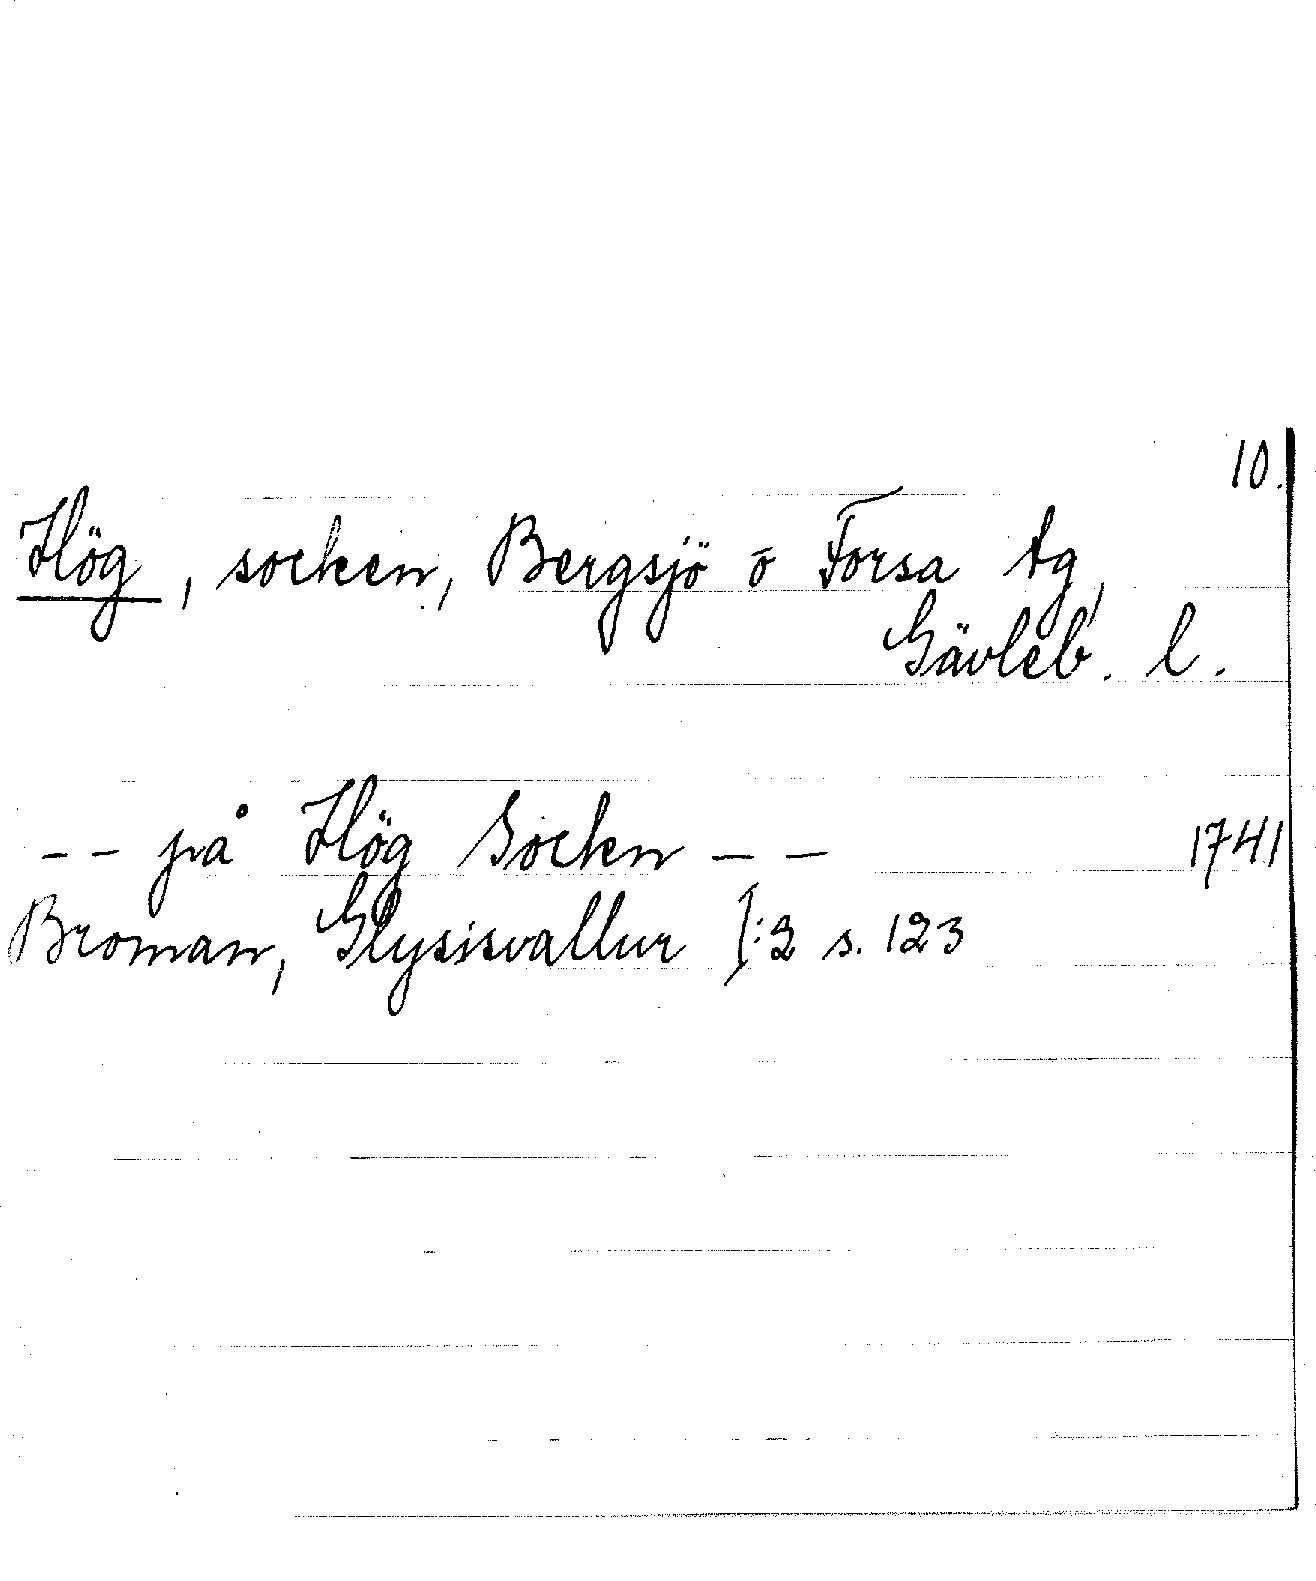 10.
Hög, socken, Bergsjö o Forsa tg,
Gävleb. l.
-- på Hög Sockn -- 1741
Broman, Glysisvallur I:2 s. 123